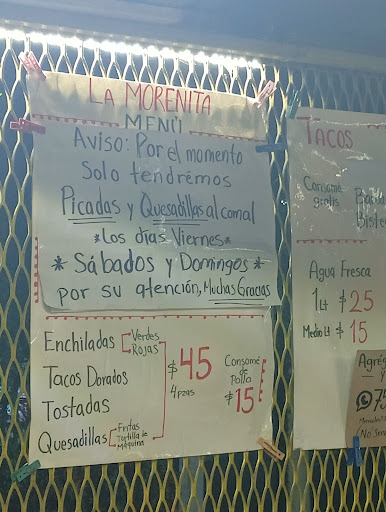 LA MORENITA
MENÚ
Aviso: Por el momento
Solo tendrémos
Picadas y Quesadillas al comal
*Los días Viernes*
* Sábados y Domingos *
por su atención, Muchas Gracias
Enchiladas Verdes
Rojas
Tacos Dorados
Tostadas
Quesadillas Fritas
Tortilla de
Máquina
$45
4 pzas
Consomé
de
Pollo
$15
TACOS
Consomé
gratis
Agua Fresca
1 Lt $25
Medio Lt $15